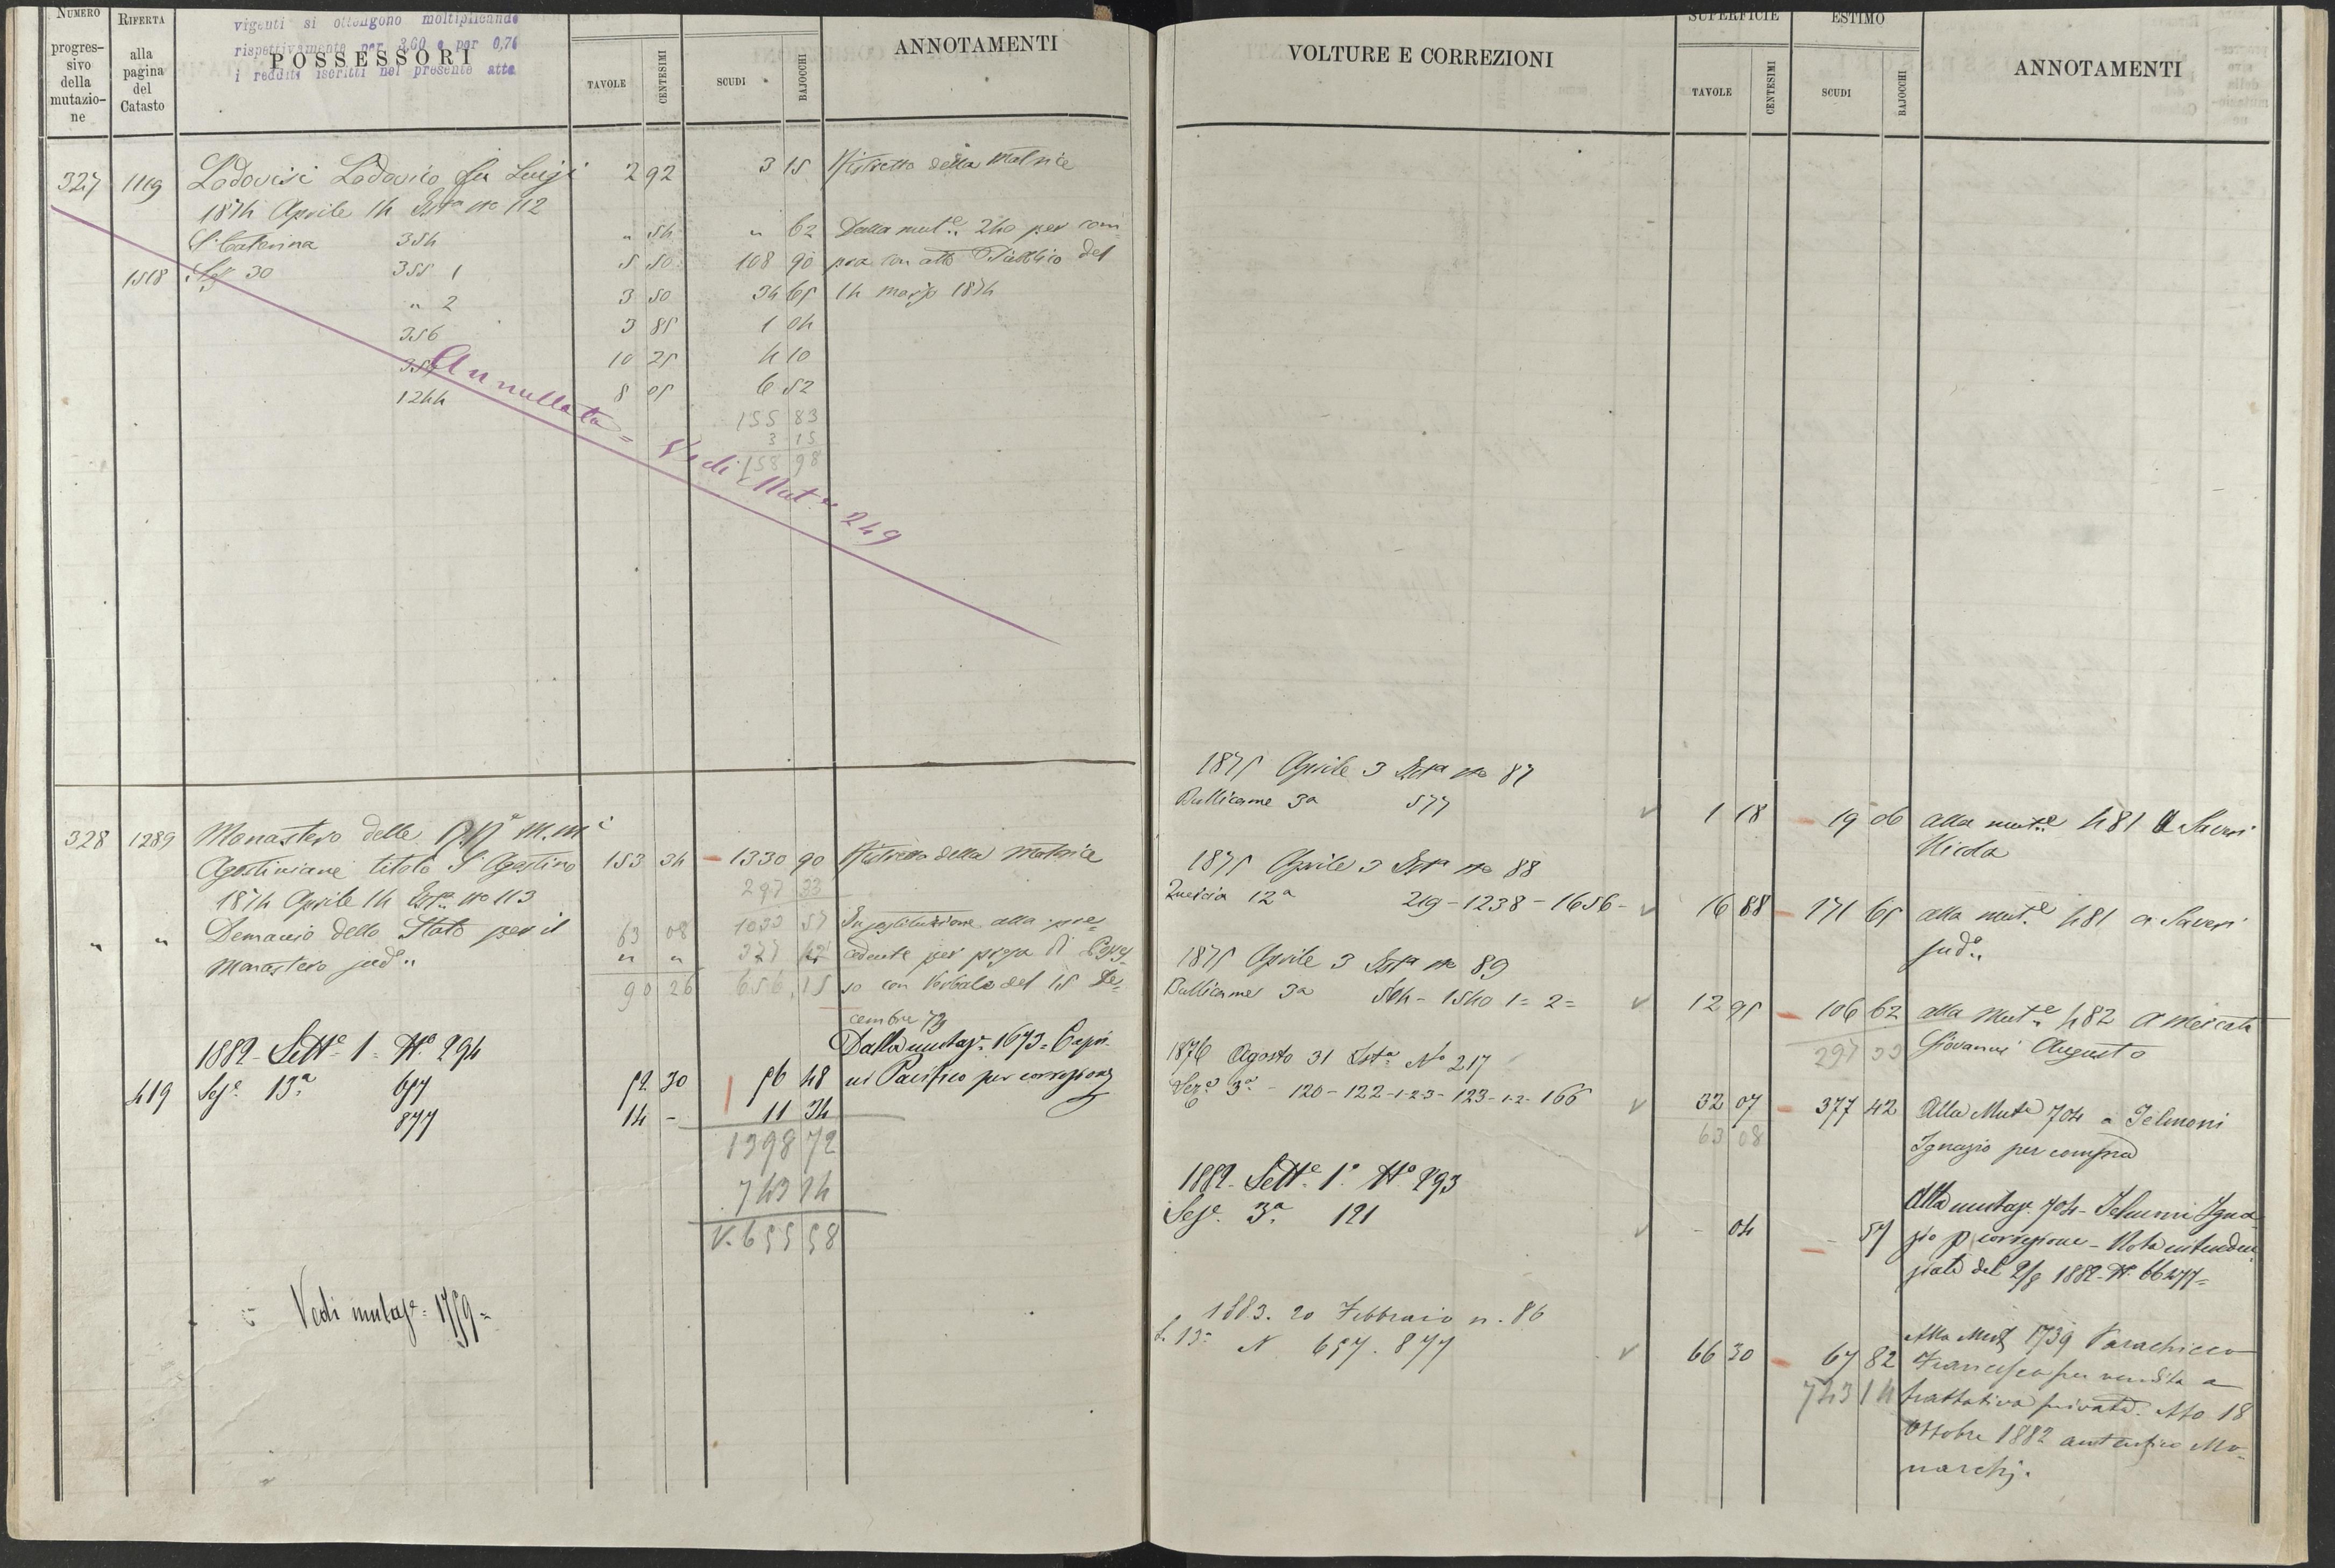 NUMERO
progres-
sivo
della
mutazio-
ne
RIFERTA
alla
pagina
del
Catasto
vigenti si ottengono moltiplicando
rispettivamente per 3,60 e per 0,74
i redditi iscritti nel presente atto
POSSESSORI
TAVOLE
CENTESIMI
SCUDI
BAJOCCHI
ANNOTAMENTI
327 1119 Lodovisi Lodovico fu Luigi 2 92 3 15 Ristretto della Matrice
1874 Aprile 14 Ista no 112
S. Caterina 354 " 54 " 62 Dalla mut.e 240 per com
1518 Sez 30 355 1 5 50 108 90 pra con atto Pubblico del
" 2 3 50 34 65 14 marzo 1874
356 3 85 1 04
357 10 25 4 10
1244 8 05 6 52
155 83
3 15
158 98
Annullata = Vedi Mut.e 249
328 1289 Monastero delle RR.e M.M.e
Agostiniane titolo S. Agostino 153 34 1330 90 Ristretto della Matrice
297 33
1874 Aprile 14 Ista no 113
" " Demanio dello Stato per il 63 08 1033 57 In sostituzione alla pre
Monastero sud.o " " 377 42 cedente per presa di Posses
90 26 656,15 so con Verbale del 15 De=
cembre 73
Dalla mutaz.e 1673 =
1882 - Sett.e 1.o N.o 294
419 Sez.e 13.a 657 52 30 56 48 ni Pacifico per correzione
877 14 - 11 34
1398 72
743 14
V. 655 58
Vedi mutaz.e = 1759 =
VOLTURE E CORREZIONI
SUPERFICIE
TAVOLE
CENTESIMI
ESTIMO
SCUDI
BAJOCCHI
ANNOTAMENTI
1875 Aprile 3 Ista no 87
Bullicame 3a 577 1 18 19 06 alla mut.e 481 a Saveri
Nicola
1875 Aprile 3 Ista no 88
Quercia 12a 219 - 1238 - 1656 - 16 88 171 65 alla mut.e 481 a Saveri
sud.o
1875 Aprile 3 Ista no 89
Bullicame 3a 564 - 1540 1 = 2 = 12 95 106 62 alla Mut.e 482 a Mercati
297 33 Giovanni Augusto
1876 Agosto 31 Ista No 217
Sez.e 3.a - 120 - 122 - 1-2-3 - 123 - 1-2 - 166 32 07 377 42 Alla Mut.e 704 a Telmoni
63 08 Ignazio per compra
1882 - Sett.e 1.o N.o 293
Sez.e 3.a 121 - 04 - 57 Alla mutaz.e 704 - Telmoni Igna
zio p correzione - Nota intenden
ziale del 2/8 1882 - N. 66277 =
1883. 20 Febbraio n. 86
S. 13a N 657. 877 66 30 67 82 Alla Mut 1739
743 14 Francesco per vendita a
trattativa privata. Atto 18
Ottobre 1882 autentico Mo=
narchj.